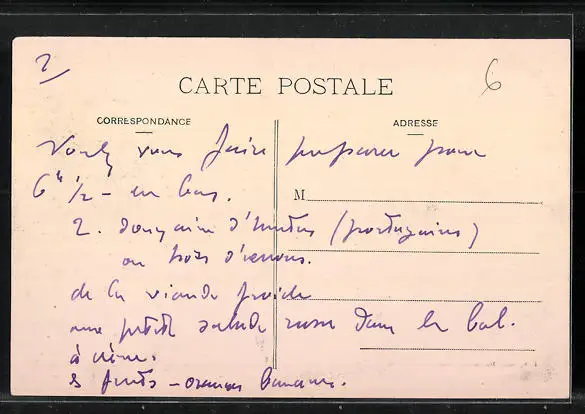 2
6
CARTE POSTALE
CORRESPONDANCE
ADRESSE
Voulez vous faire préparer pour
6h 1/2 – en bas.
M
2. douzaine d'huitres (portugaises)
ou trois d'environ.
de la viande froide
une petite salade russe dans le bol.
à crème.
& fruits – oranges bananes.